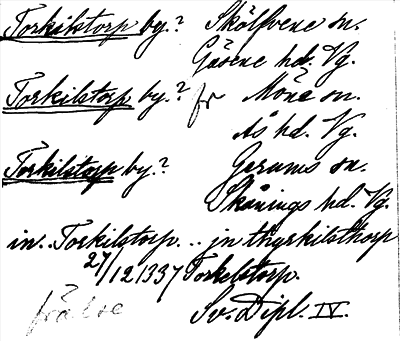 Torkilstorp by.? Skölfvene sn.
Gäsene hd. Vg.
Torkilstorp by.? fr Möne sn.
Ås hd. Vg.
Torkilstorp by.? Gerums sn.
Skånings hd. Vg.
in. Torkilstorp... jn thyrkilsthorp
27/12 1337 Torkelstorp.
frälse Sv. Dipl. IV.